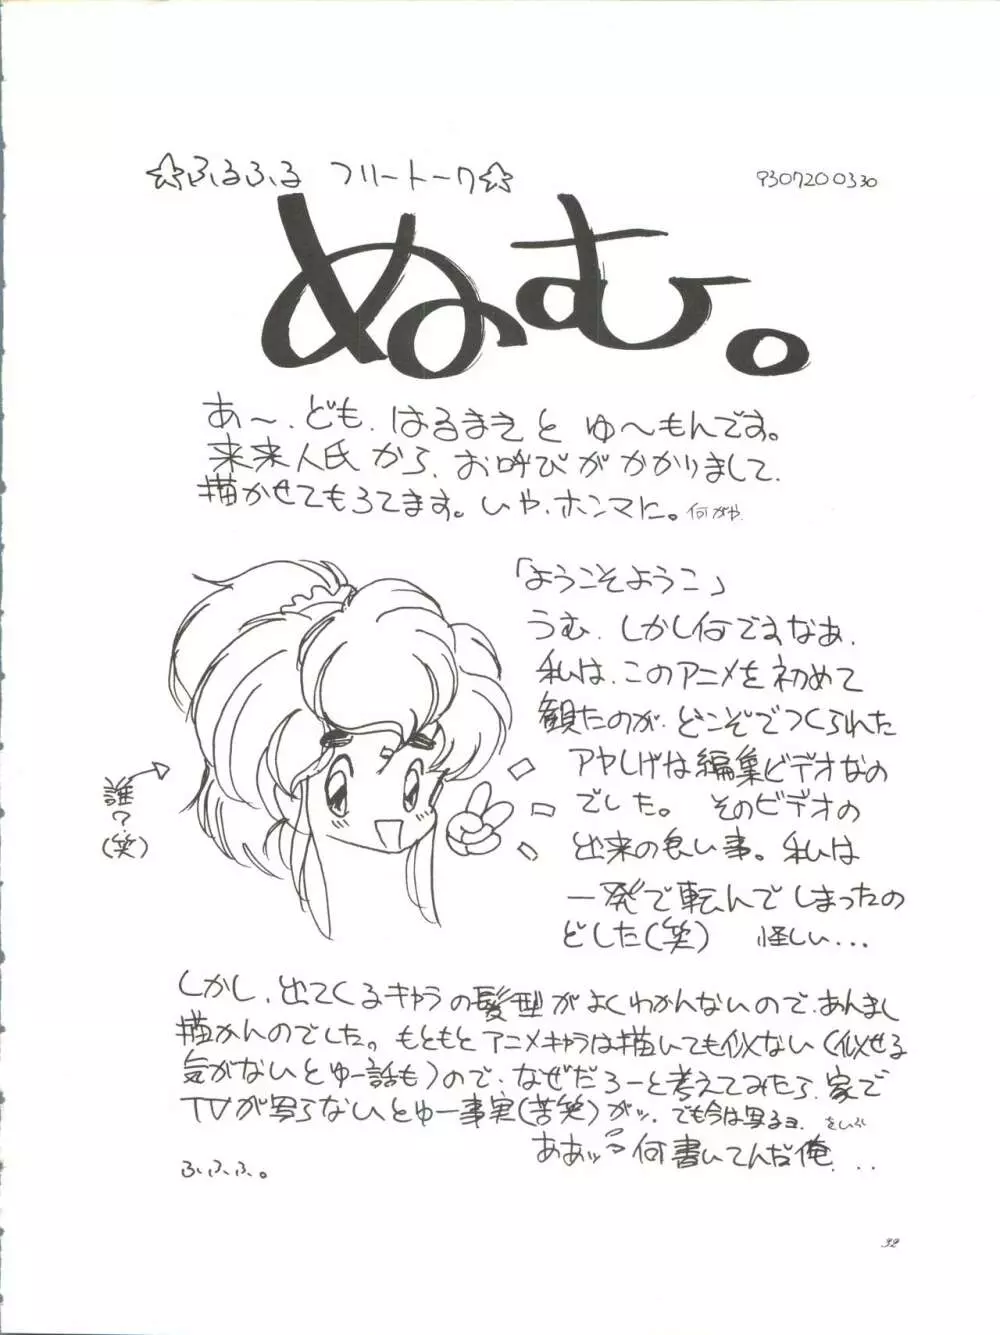 ☆ふるふる フリートーク☆
930720 0330
ぬむ。
あ〜、ども、はるまきと ゆ〜もんです。
来来人氏から、お呼びがかかりまして、
描かせてもろてます。いや、ホンマに。何がや
「ようこそようこ」
うむ、しかし何ですなあ、
私は、このアニメを初めて
観たのが、どこぞでつくられた
アヤしげな編集ビデオなの
でした。 そのビデオの
出来の良い事。私は
一発で転んでしまったの
どした(笑) 怪しい...
誰?
(笑)
しかし、出てくるキャラの髪型がよくわかんないので、あんまし
描かんのでした。もともとアニメキャラは描いても似ない(似せる
気がないとゆー話も)ので、なぜだろーと考えてみたら、家で
TVが写らないとゆー事実(苦笑)がッ。でも今は写るョ。
ああッ 何書いてんだ俺...
ふ、ふ、ふ。
32